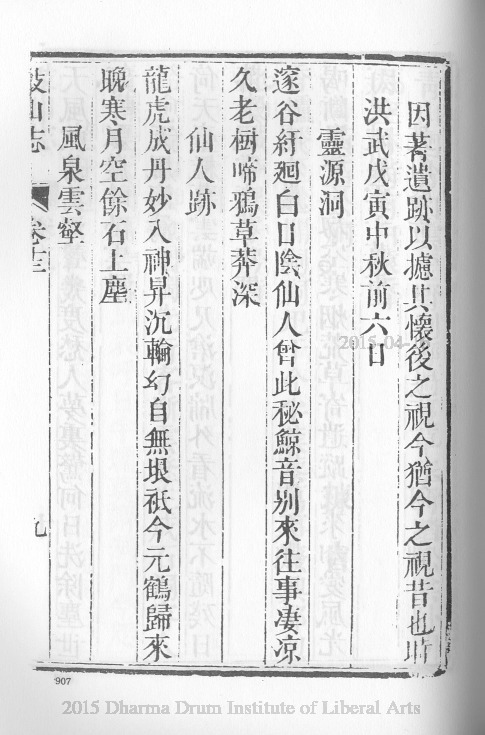 因著遺跡以攄其懷後之視今猶今之視昔也時
洪武戊寅中秋前六日
靈源洞
邃谷紆廻白日陰仙人曾此秘鯨音別來往事凄凉
久老樹啼鴉草莽深
仙人跡
龍虎成丹妙入神昇沉輪幻自無垠祇今元鶴歸來
晚寒月空餘石上塵
風泉雲壑
鼓山志 卷十三 九
2015.04
907
2015 Dharma Drum Institute of Liberal Arts